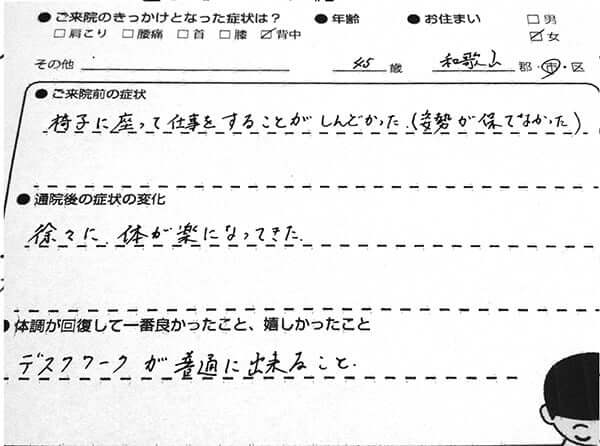 ●ご来院のきっかけとなった症状は? ●年齢 ●お住まい □男
□肩こり □腰痛 □首 □膝 ☑背中 ☑女
その他 45歳 和歌山 郡・市・区
●ご来院前の症状
椅子に座って仕事をすることがしんどかった.(姿勢が保てなかった)
●通院後の症状の変化
徐々に、体が楽になってきた.
●体調が回復して一番良かったこと、嬉しかったこと
デスクワークが普通に出来ること.